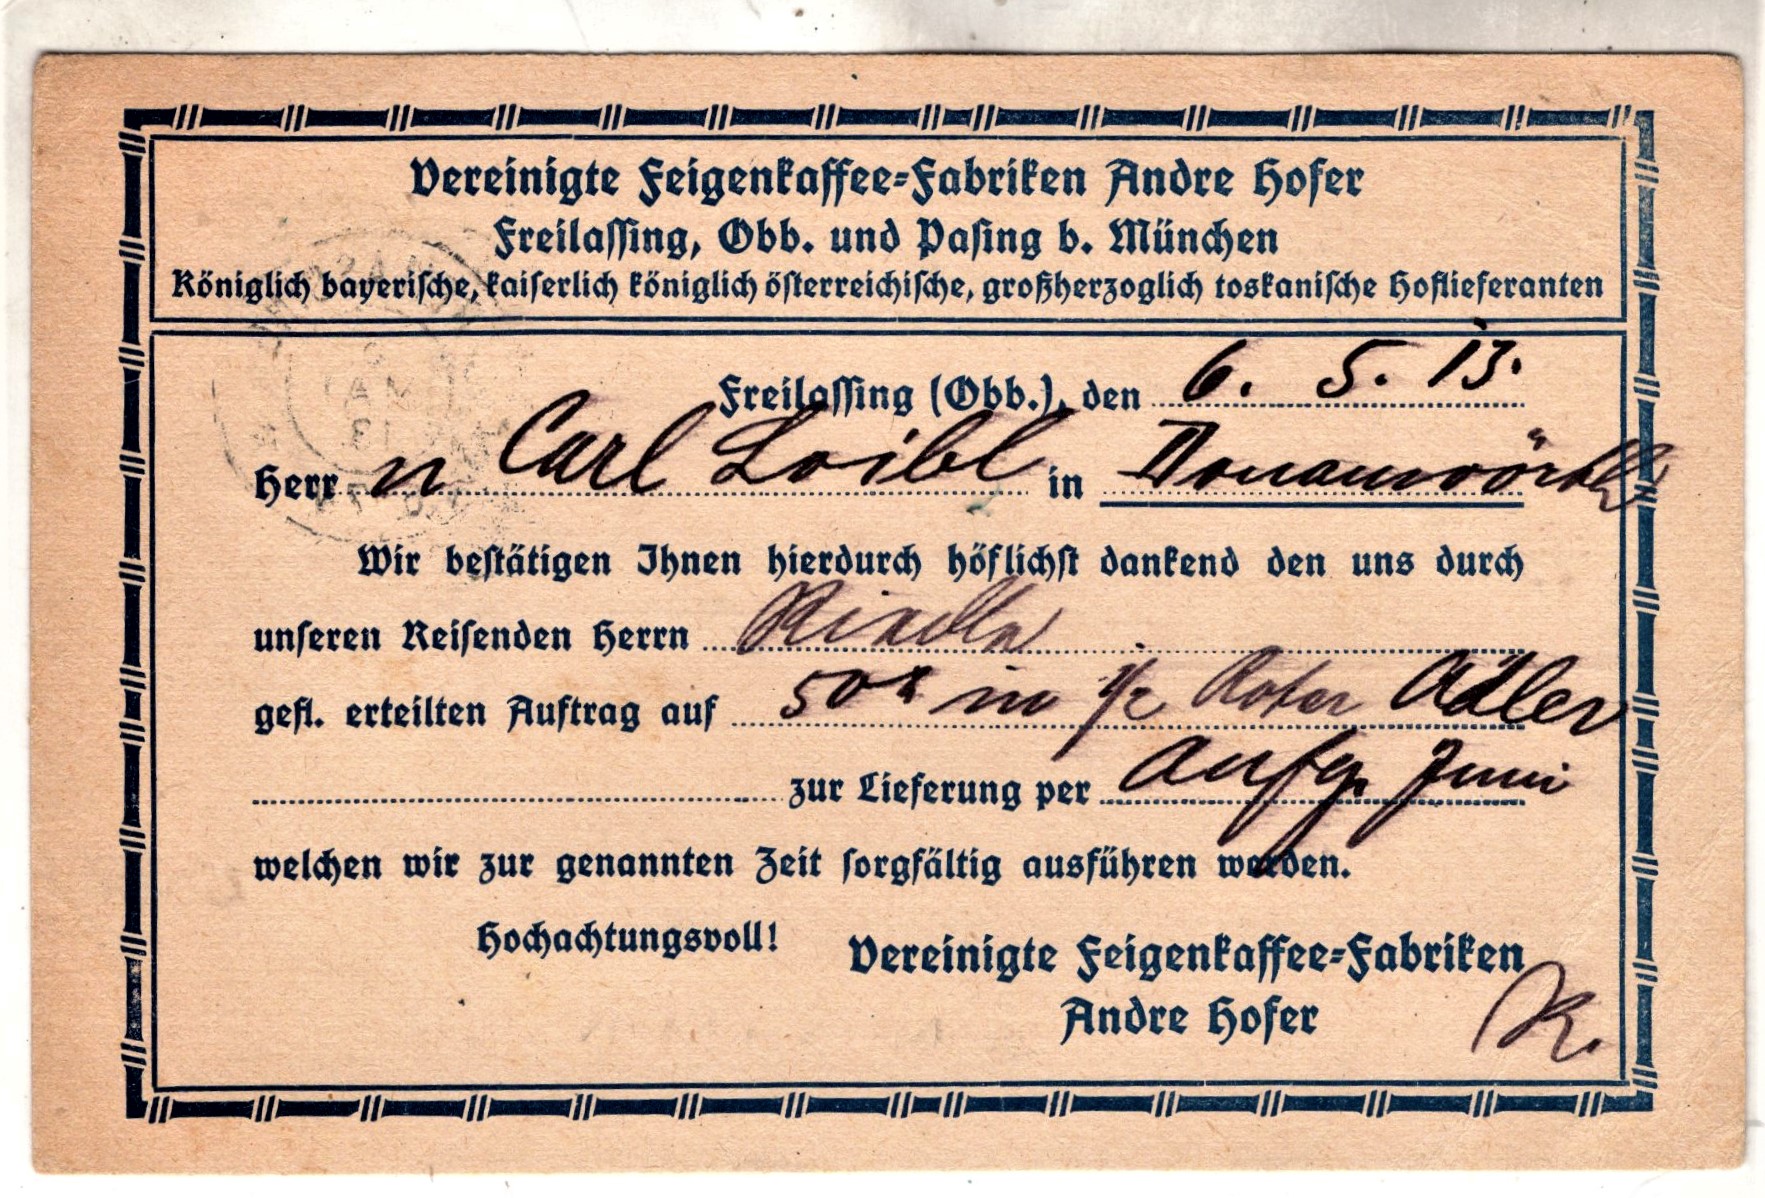 Vereinigte Feigenkaffee-Fabriken Andre Hofer
Freilassing, Obb. und Pasing b. München
Königlich bayerische, kaiserlich königlich österreichische, großherzoglich toskanische Hoflieferanten
Freilassing (Obb.), den 6. 5. 13.
Herrn Carl Loibl in Donauwörth
Wir bestätigen Ihnen hierdurch höflichst dankend den uns durch
unseren Reisenden Herrn
gefl. erteilten Auftrag auf 50 in 1/2 Roter Adler
zur Lieferung per Anfg. Juni
welchen wir zur genannten Zeit sorgfältig ausführen werden.
Hochachtungsvoll!
Vereinigte Feigenkaffee-Fabriken
Andre Hofer
R.